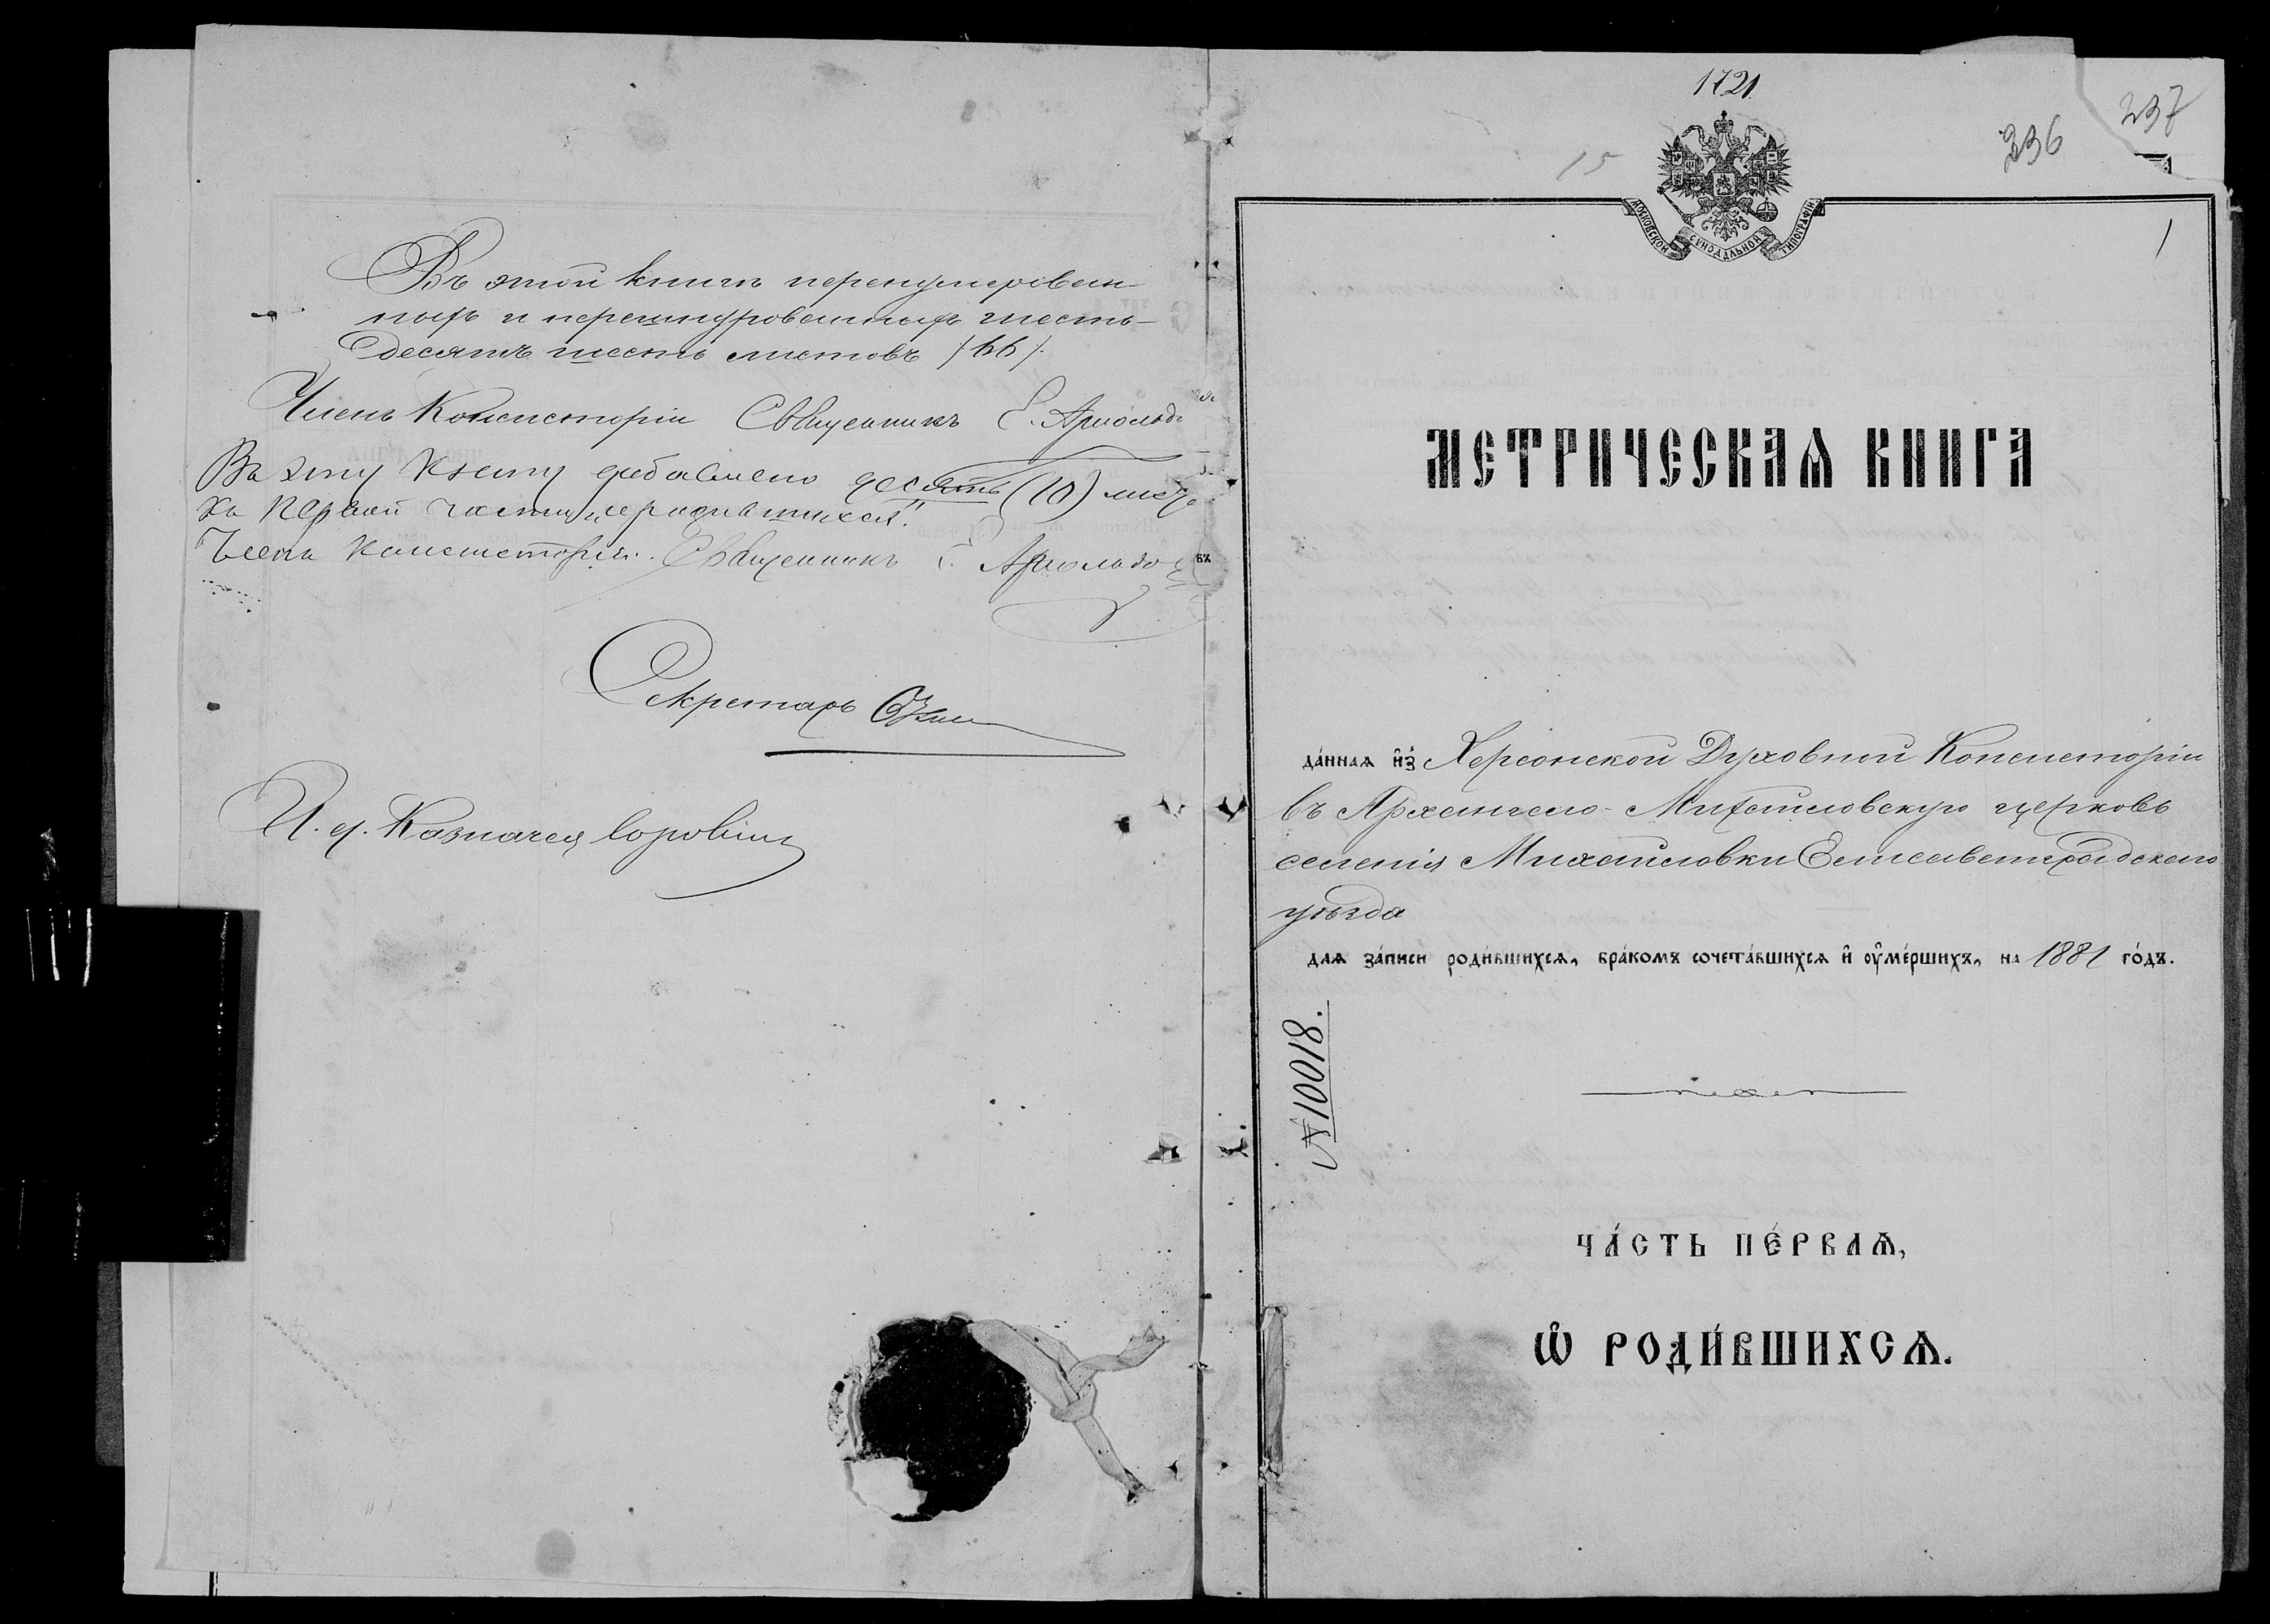 Въ этой книгѣ перенумерован-
ныхъ и перешнурованныхъ шесть-
десятъ шесть листовъ /66/.
Членъ Консисторіи Священникъ Е. Арнольдо
Въ эту книгу добавлено десять (10) лист
къ первой части, о родившихся".
Членъ Консисторіи. Священникъ Е. Арнольдовъ
Секретарь
И. д. Казначея
1721
15
236
237
1
МОСКОВСКОЙ СИНОДАЛЬНОЙ ТИПОГРАФІИ
МЕТРИЧЕСКАѦ КНИГА
да́ннаѧ и҆з̾ Херсонской Духовной Консисторіи
въ Архангело-Михайловскую церковь
селенія Михайловки Елисаветградскаго
уѣзда
длѧ за́писи роди́вшихсѧ, бра́комъ сочета́вшихсѧ и҆ ᲂу҆ме́ршихъ, на 1881 го́дъ.
№ 10018.
ЧА́СТЬ ПЕ́РВАѦ,
Ѡ҆ РОДИ́ВШИХСѦ.